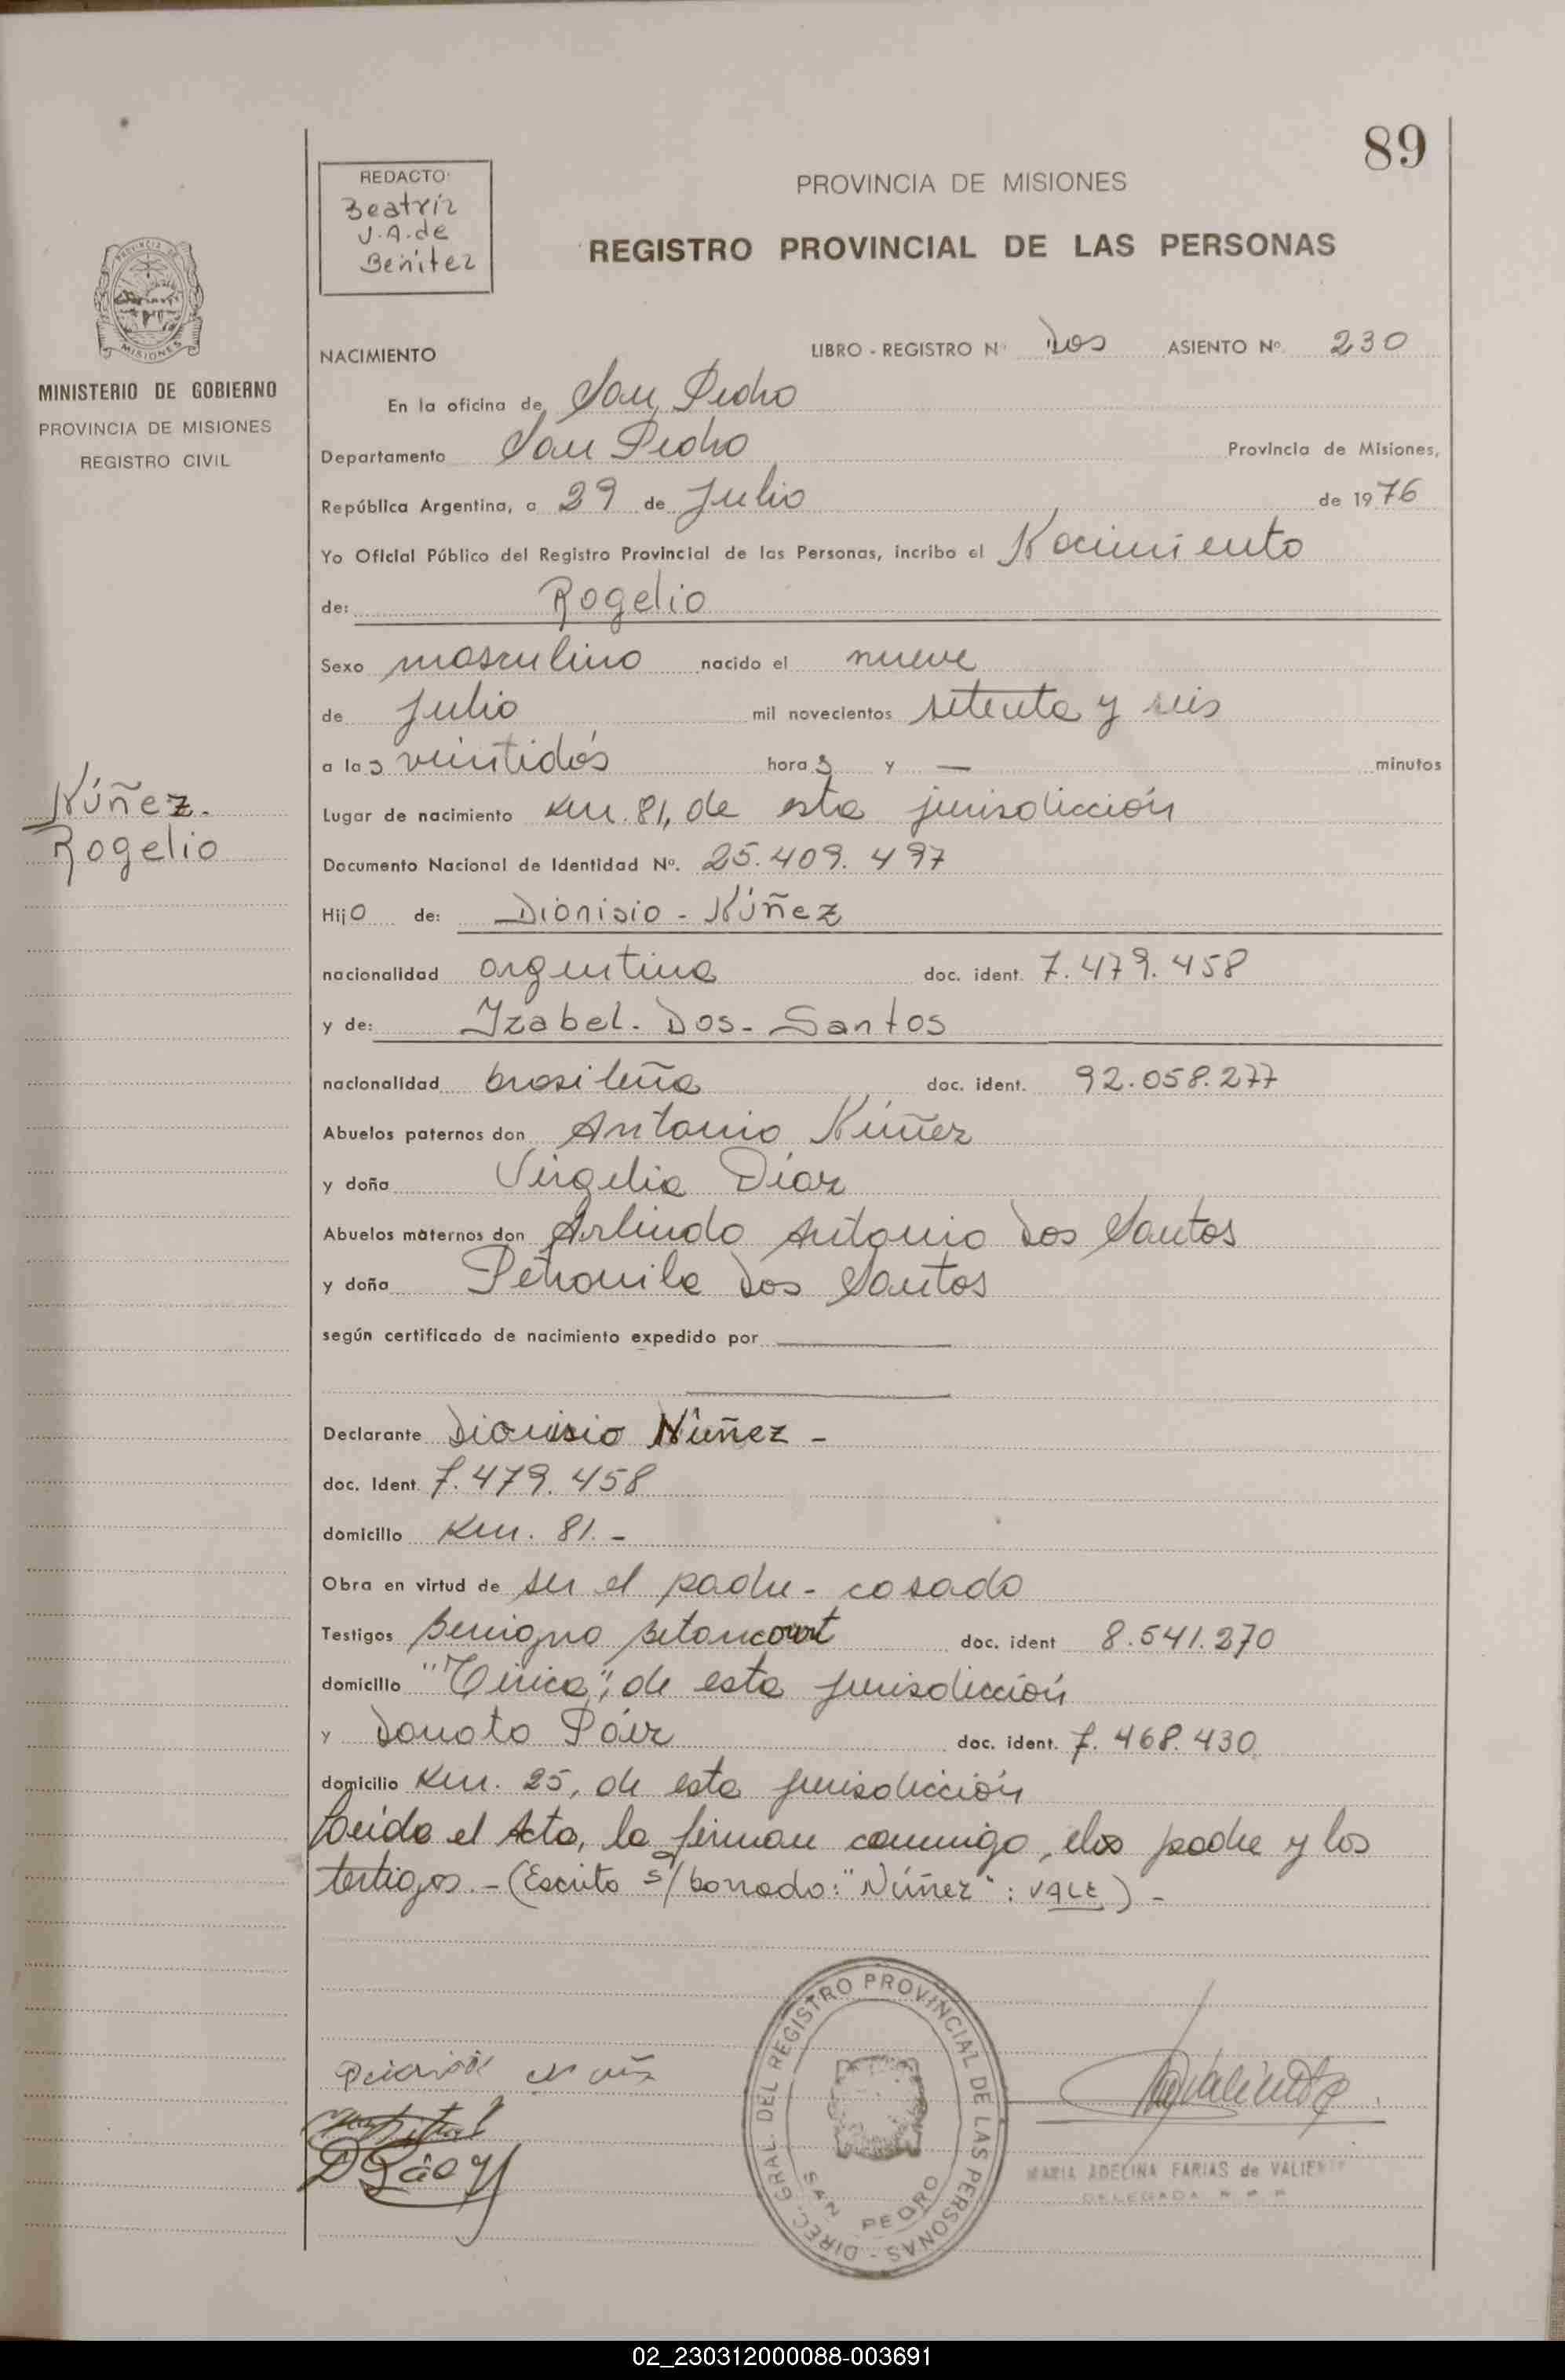 89
REDACTO:
Beatriz
V.A. de
Benítez
PROVINCIA DE MISIONES
REGISTRO PROVINCIAL DE LAS PERSONAS
PROVINCIA DE
MISIONES
MINISTERIO DE GOBIERNO
PROVINCIA DE MISIONES
REGISTRO CIVIL
NACIMIENTO LIBRO - REGISTRO Nº Dos ASIENTO Nº 230
En la oficina de San Pedro
Departamento San Pedro Provincia de Misiones,
República Argentina, a 29 de Julio de 1976
Yo Oficial Público del Registro Provincial de las Personas, incribo el Nacimiento
de: Rogelio
Sexo masculino nacido el nueve
de Julio mil novecientos setenta y seis
a las veintidós horas y — minutos
Núñez.
Rogelio
Lugar de nacimiento Km. 81, de esta jurisdicción
Documento Nacional de Identidad Nº. 25.409.497
Hijo de: Dionisio - Núñez
nacionalidad argentina doc. ident. 7.479.458
y de: Izabel. Dos- Santos
nacionalidad brasileña doc. ident. 92.058.277
Abuelos paternos don Antonio Núñez
y doña Virgelia Díaz
Abuelos maternos don Arlindo Antonio Dos Santos
y doña Petronila Dos Santos
según certificado de nacimiento expedido por
Declarante Dionisio Núñez -
doc. Ident. 7.479.458
domicilio Km. 81.-
Obra en virtud de ser el padre - casado
Testigos Benigno Betancourt doc. ident 8.541.270
domicilio "Tirica", de esta jurisdicción
y Donato Páez doc. ident. 7.468.430
domicilio Km. 25, de esta jurisdicción
Leída el Acta, la firman conmigo, el padre y los
testigos.-(Escrito s/borrado: "Núñez": VALE)-
DIREC. GRAL. DEL REGISTRO PROVINCIAL DE LAS PERSONAS -
SAN PEDRO
MARIA ADELINA FARIAS de VALIENTE
DELEGADA R P P
02_230312000088-003691